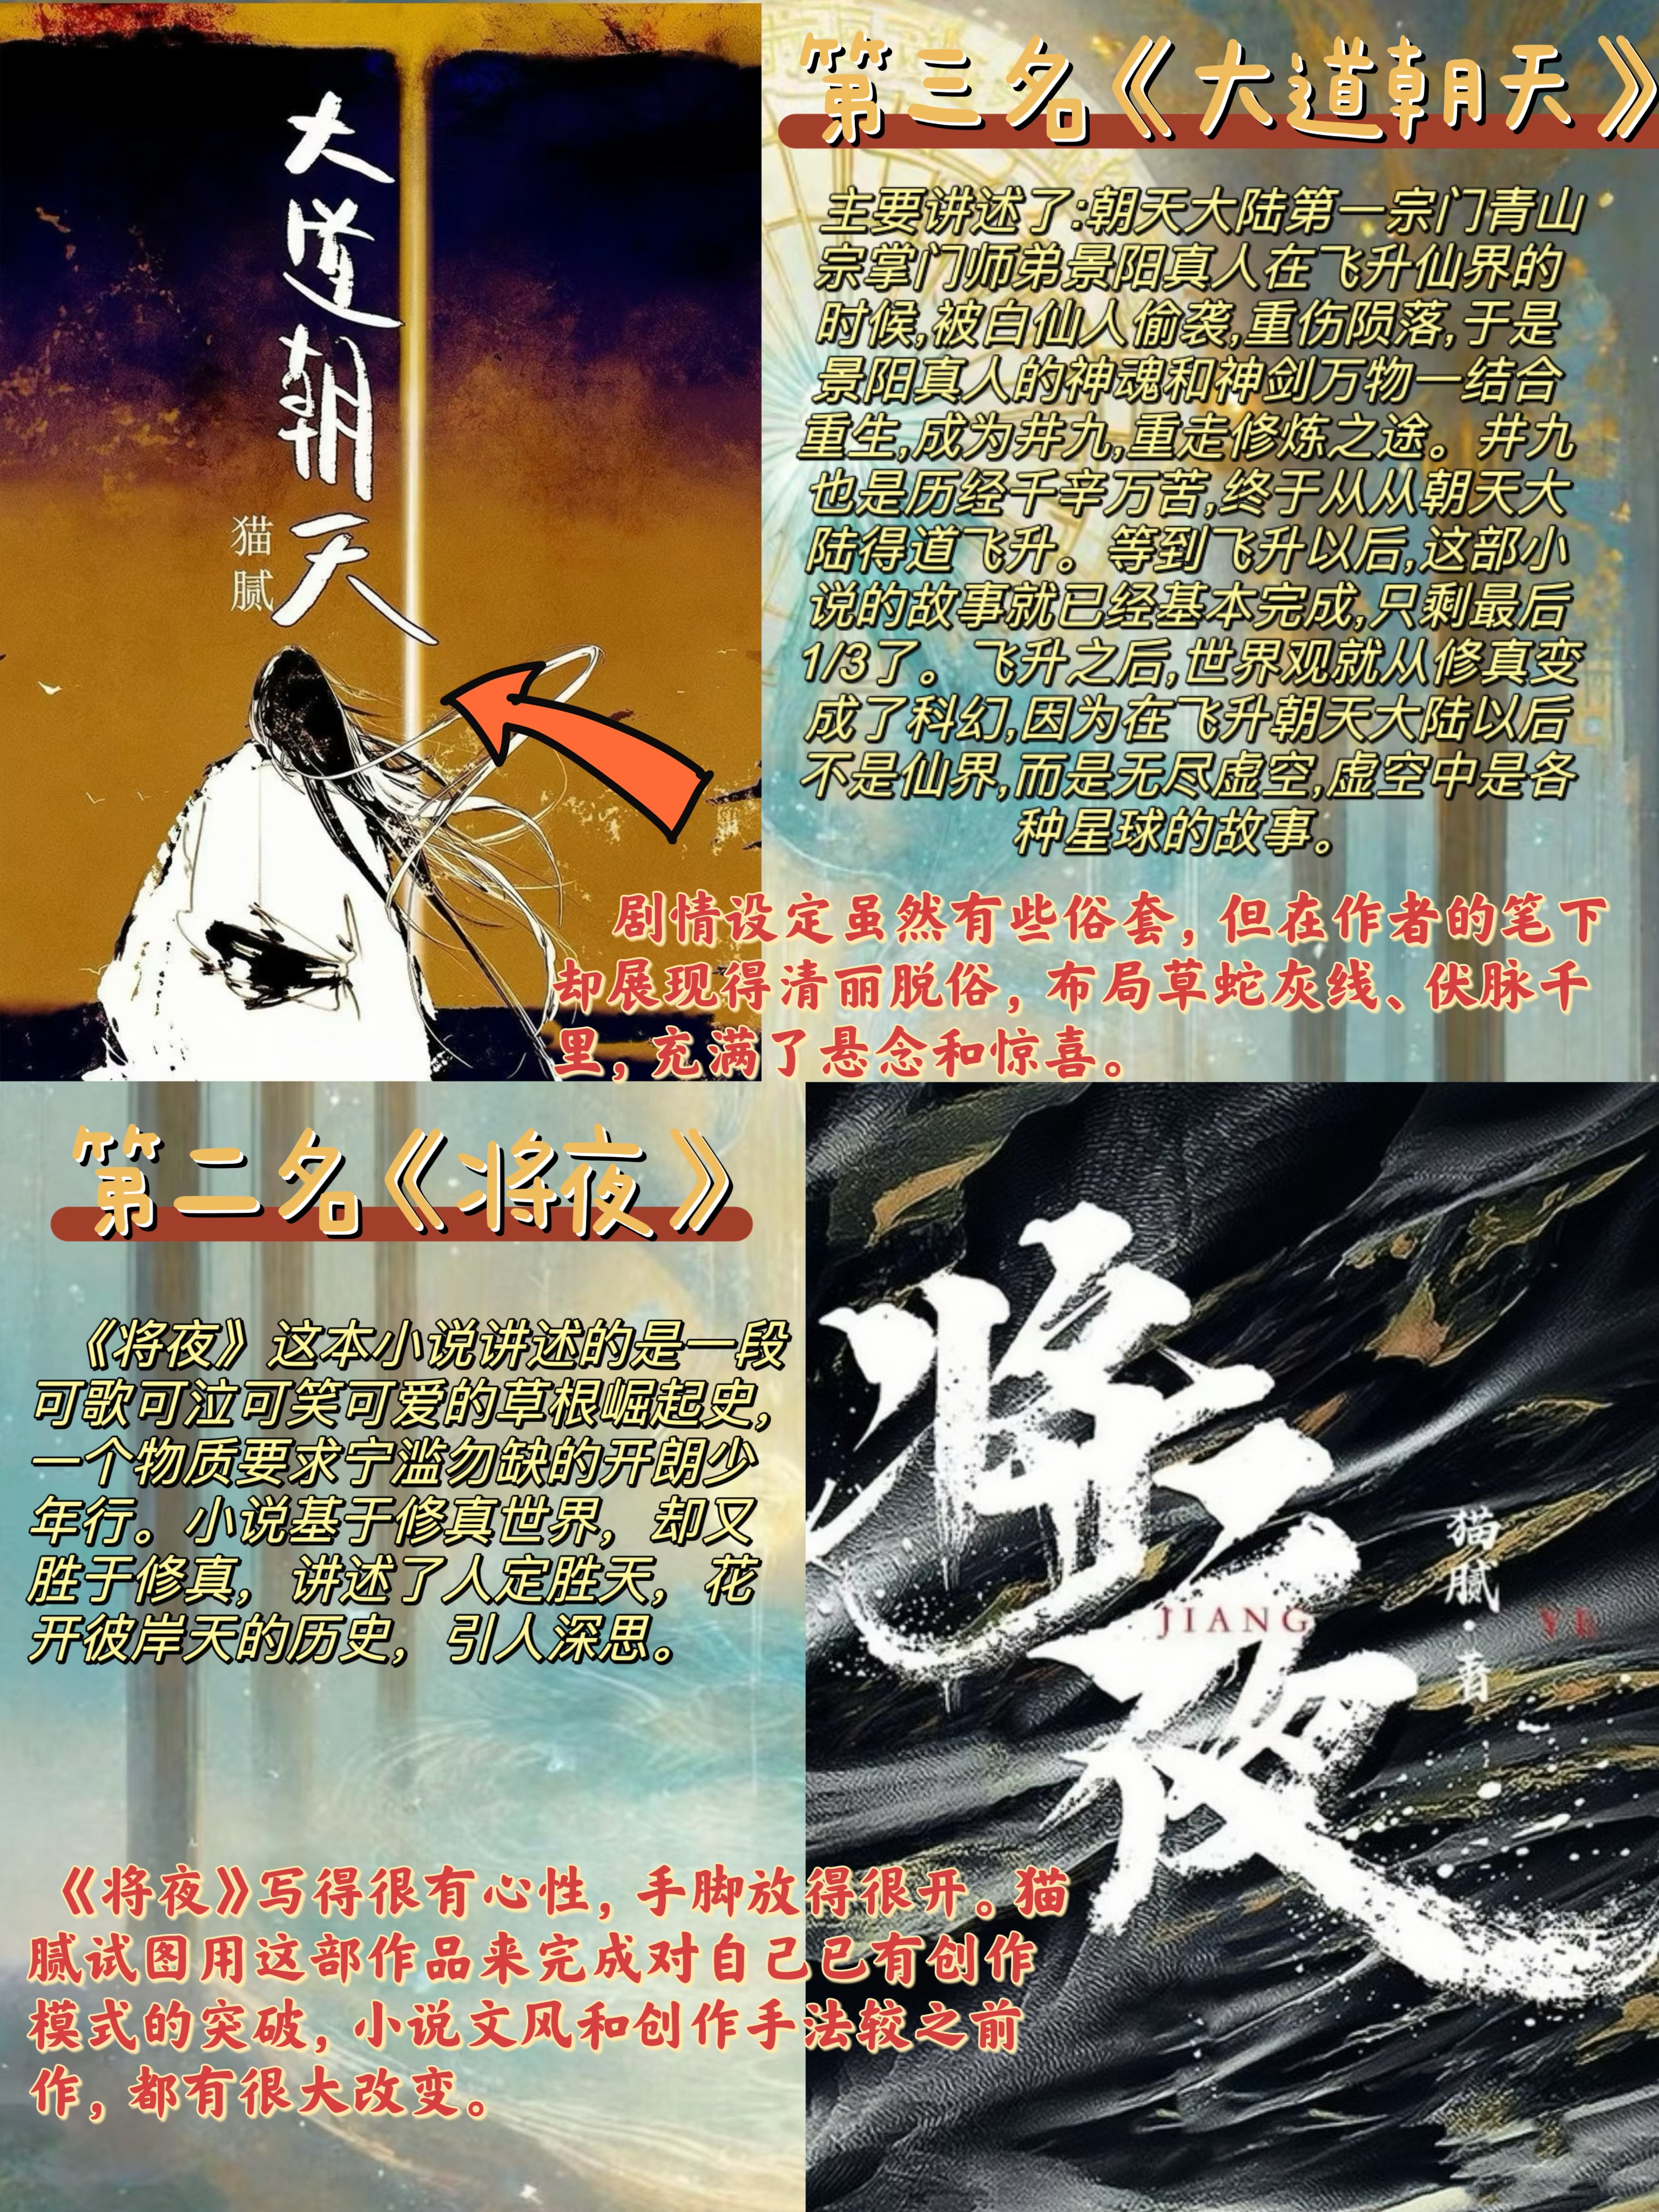 大道朝天
猫腻
第三名《大道朝天》
主要讲述了:朝天大陆第一宗门青山
宗掌门师弟景阳真人在飞升仙界的
时候,被白仙人偷袭,重伤陨落,于是
景阳真人的神魂和神剑万物一结合
重生,成为井九,重走修炼之途。井九
也是历经千辛万苦,终于从从朝天大
陆得道飞升。等到飞升以后,这部小
说的故事就已经基本完成,只剩最后
1/3了。飞升之后,世界观就从修真变
成了科幻,因为在飞升朝天大陆以后
不是仙界,而是无尽虚空,虚空中是各
种星球的故事。
剧情设定虽然有些俗套,但在作者的笔下
却展现得清丽脱俗,布局草蛇灰线、伏脉千
里,充满了悬念和惊喜。
第二名《将夜》
《将夜》这本小说讲述的是一段
可歌可泣可笑可爱的草根崛起史,
一个物质要求宁滥勿缺的开朗少
年行。小说基于修真世界，却又
胜于修真，讲述了人定胜天，花
开彼岸天的历史，引人深思。
将夜
JIANG YE
猫腻·著
《将夜》写得很有心性,手脚放得很开。猫
腻试图用这部作品来完成对自己已有创作
模式的突破,小说文风和创作手法较之前
作,都有很大改变。